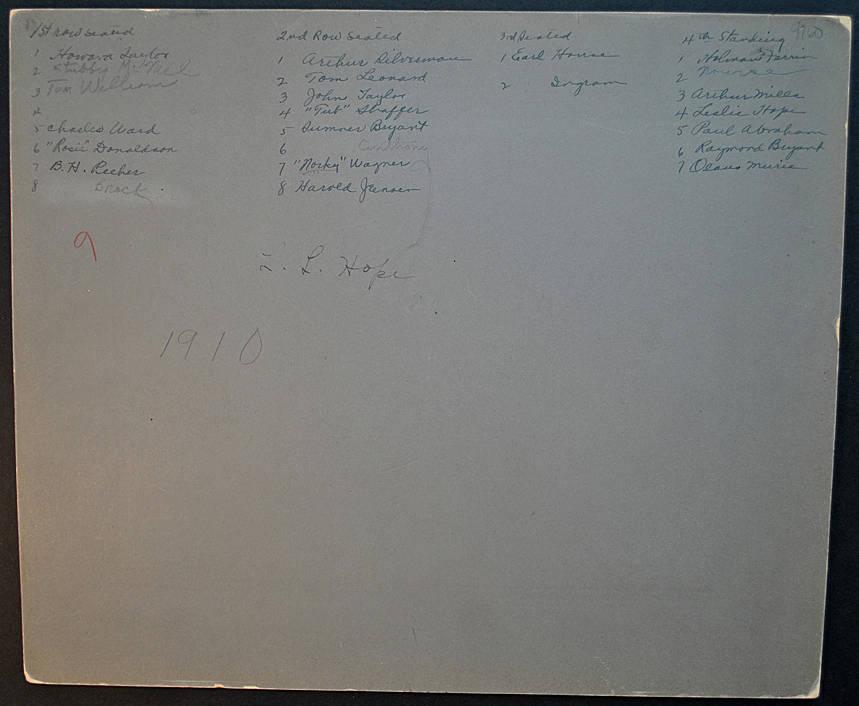 1st row seated
1 Howard Taylor
2 Stubby
3 Tom William
4
5 Charles Ward
6 "Rosie" Donaldson
7 B. H.
8 Brock
2nd Row seated
1 Arthur Silverman
2 Tom Leonard
3 John Taylor
4 "Tub" Shaffer
5 Sumner Bryant
6
7 "Norky" Wagner
8 Harold Jensen
3rd Seated
1 Earl House
2 Ingram
4th Standing
1 Holman
2
3 Arthur Mills
4 Leslie Hope
5 Paul Abraham
6 Raymond Bryant
7 Olaus Murie
9760
9
L. L. Hope
1910